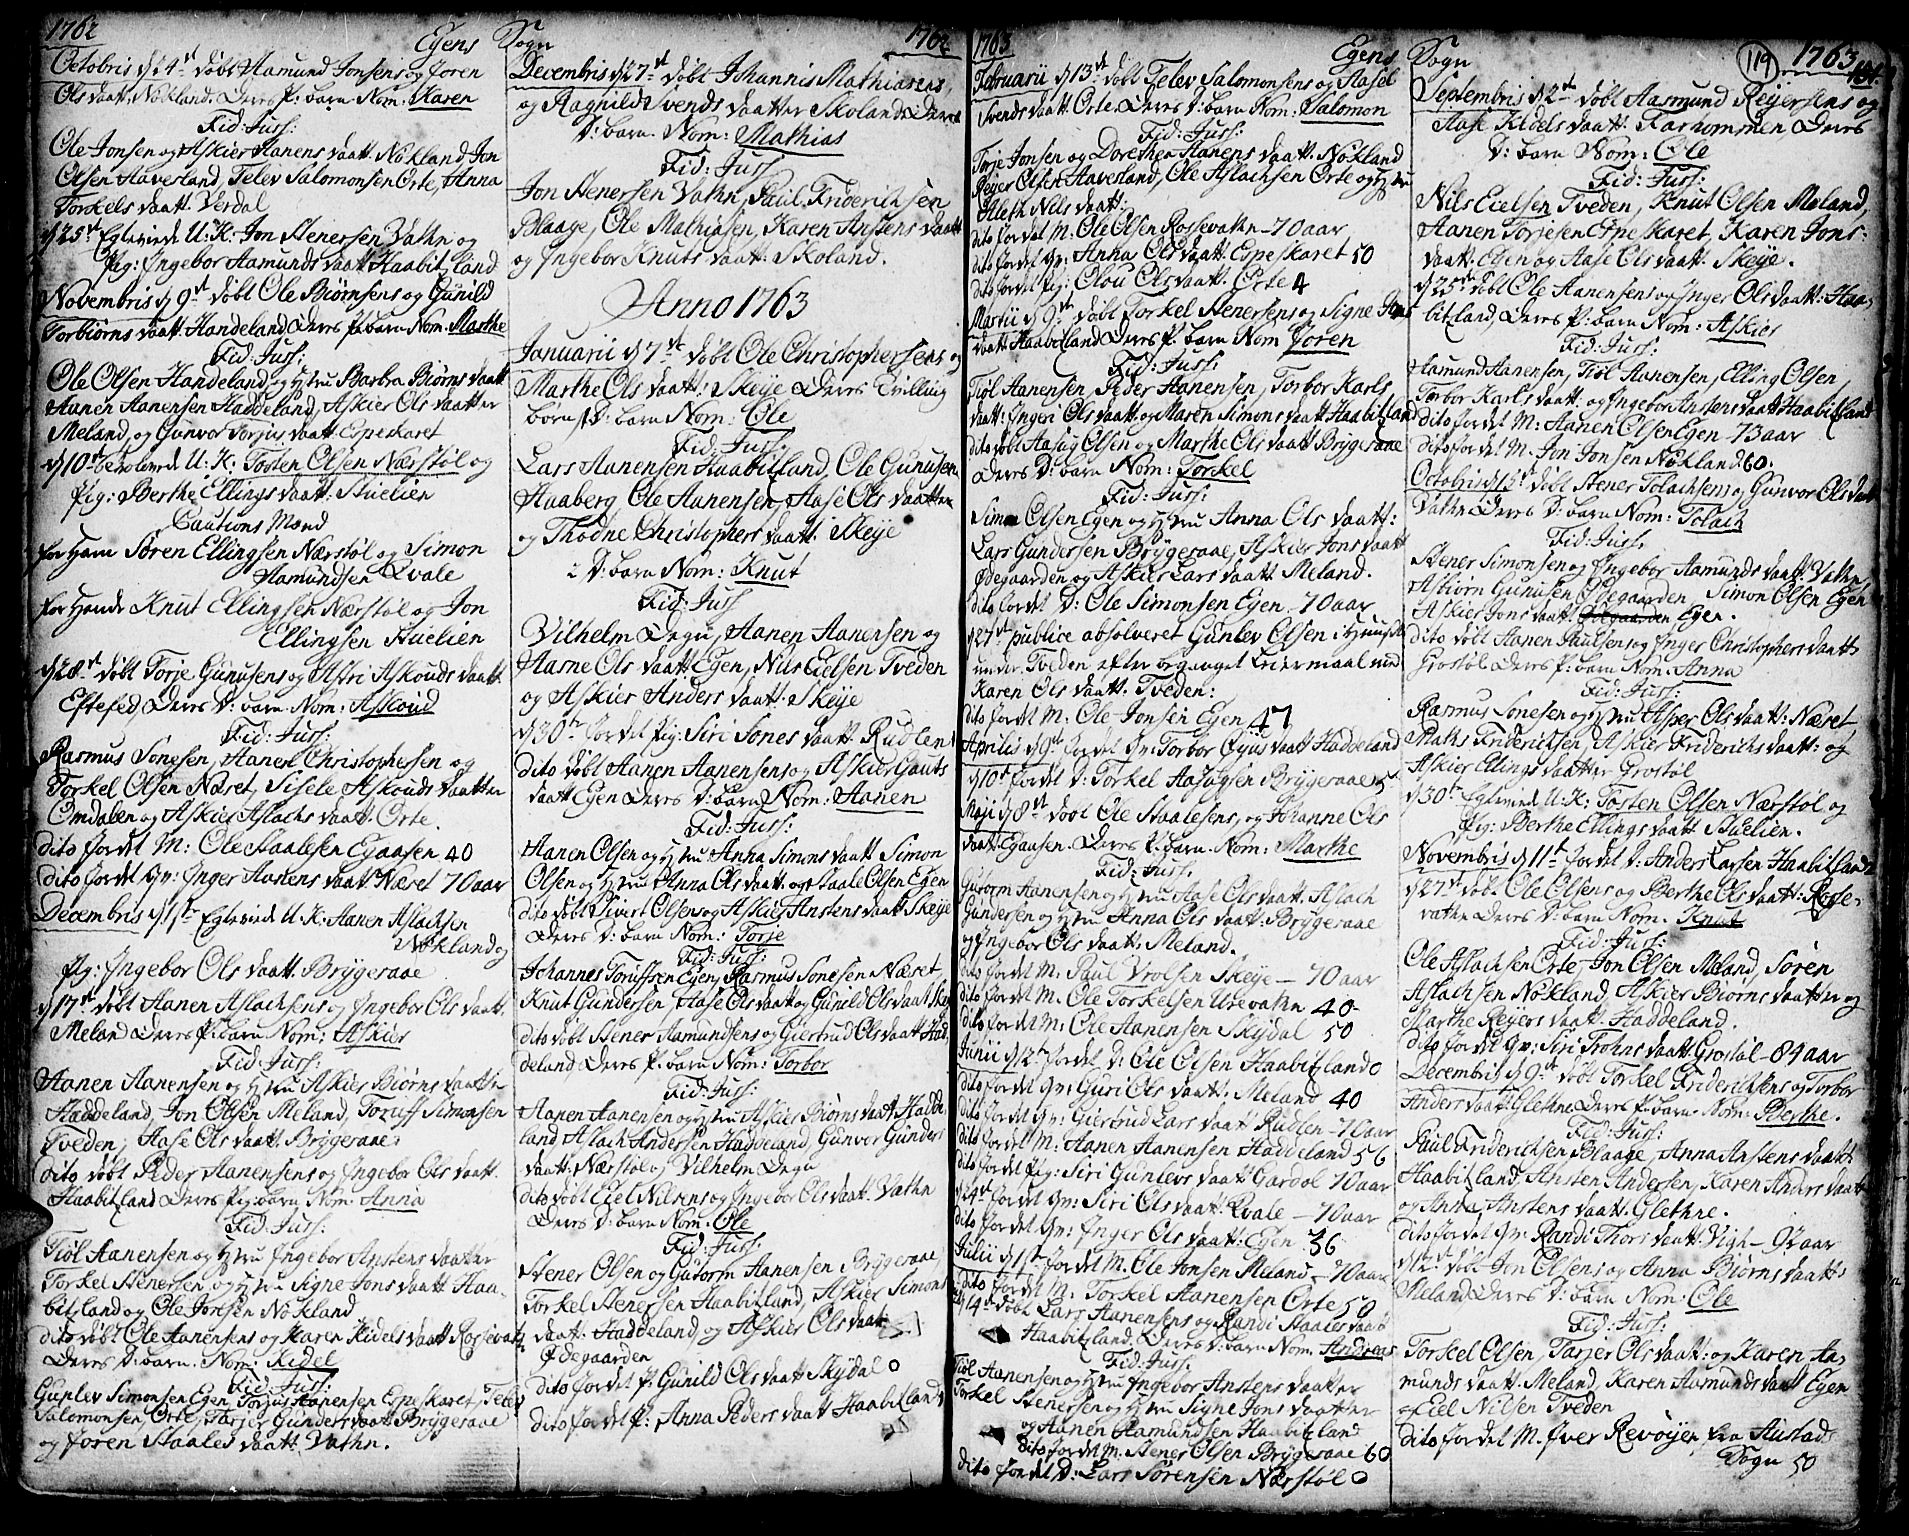 1762 Egens Sogn 1762
Octobris d 24st døbt Aamund Jonsens og Joren
Ols daatt. Nøkland. Deres P: barn Nom: Karen
Fid: Juss:
Ole Jonsen og Askier Aanens daatt. Nøkland, Jon
Olsen Aaversland, Telev Salomonsen Orte, Anna
Torkels daatt. Verdal
d 25st Egteviede U: K: Jon Henersen Vathn og
Pig: Ingebor Aamunds daatt Haabitzland
Novembris d 9st døbt Ole Biørnsens og Gunild
Torbiørns daatt. Handeland Deres P: barn Nom: Marthe
Fid: Juss:
Ole Olsen Handeland, og Hstru Barbra Biørns daatt
Aanen Aanensen Haddeland, Askier Ols daatter
Meland, og Gunvor Torjus daatt. Espeskaret
d 10st trolovede U: K: Tosten Olsen Nærstøl og
Pig: Berthe Ellings daatt. Stuelien
Cautions Mænd
for Ham Søren Ellingsen Nærstøl og Simon
Aamundsen Qvale
for Hende Knut Ellingsen Nærstøl og Jon
Ellingsen Stuelien
d 28st døbt Torje Gunusens og Astri Askouds daatt.
Eftefed, Deres D: barn Nom: Askoud
Fid: Juss:
Rasmus Sonesen, Aanen Christophersen og
Torkel Olsen Næret, Sisele Askouds daatter
Omdalen og Askier Aslachs daatt. Orte.
dito fordet M: Ole Staalesen Egaasen 40
dito fordet Qv: Inger Aanens daatt Næret 70 aar
Decembris d 1st Egteviede U: K: Aanen Aslachsen
Nøkland og
Pig: Ingebor Ols daatt. Brygeraae
d 17st døbt Aanen Aslachsens og Ingebor Ols daatt.
Meland Deres P: barn Nom: Askier
Fid: Juss:
Aanen Aanensen og Hstru Askier Biørns daatter
Haddeland, Jon Olsen Meland, Toruff Simonsen
Tveden, Aase Ols daatt. Brygeraae
dito døbt Peder Aanensens og Ingebor Ols daatt.
Haabitzland Deres Pig: barn Nom: Anna
Fid: Juss:
Tiøl Aanensen og Hstru Ingebor Anstens daatter
Torkel Stenersen og Hstru Signe Jons daatt Haa-
bitzland og Ole Jonsen Nøkland
dito døbt Ole Aanensens og Karen Kidels daatt Rosevatn
Deres D: barn. Nom: Kidel
Fid: Juss:
Gunlev Simonsen Egen Torjus Aanensen Espeskaret, Telev
Salomonsen, Orte, Tarjer Gunders daatt Brygeraae
og Joren Staales daatt. Vathn.
Decembris d 27st døbt Johannis Mathiasens,
og Raghild Svends daatter Skoland Deres
D: barn. Nom: Mathias
Fid: Juss
Jon Henersen Vathn, Paul Friderichsen
Blaage, Ole Mathiasen, Karen Anstens daatt
og Ingebor Knuts daatt. Skoland.
Anno 1763
Januarii d 7st døbt Ole Christophersens og
Marthe Ols daatt. Skeye Deres Tvilling
børn 1 D: barn Nom: Ole
Fid: Juss:
Lars Aanensen Haabitzland, Ole Gunusen
Haaberg, Ole Aanensen, Aase Ols daatter
og Thodne Christophers daatt. Skeye
2 D: barn Nom: Knut
Fid: Juss
Vilhelm Degn, Aanen Aanensen og
Aarne Ols daatt Egen, Nils Eielsen Tveden
og Askier Anders daatt. Skeye
d 30te fordet Pig: Siri Sones daatt Rudlen
dito døbt Aanen Aanensens og Askier Gauts
daatt Egen Deres D: barn Nom: Aanen
Fid: Juss:
Aanen Olsen og Hstru Anna Simons daatt. Simon
Olsen og Hstru Anna Ols daatt. og Staale Olsen Egen
dito døbt Sivert Olsens og Askier Anstens daatt Skeye
Deres D: barn Nom: Torje
Fid: Juss:
Johannes Toruffsen Egen, Rasmus Sonesen Næret,
Knut Gundersen, Aase Ols daatt og Gunild Ols daatt Skeye
dito døbt Stener Aamundsens og Giertrud Ols daatt Had-
deland, Deres P: barn Nom: Torbor
Fid: Juss:
Aanen Aanensen og Hstru Askier Biørns daatt Hadde-
land Aslach Andersen Haddeland, Gunvor Gunders
daatt. Nærstøl og Vilhelm Degn
dito døbt Eiel Nilsens og Ingebor Ols daatt. Vathn
Deres D: barn Nom: Ole
Fid: Juss:
Stener Olsen og Gutorm Aanensen Brygeraae
Torkel Henersen Haabitzland, Askier Simons
daatt. Haddeland, og Askier Ols daatt
Ødegaarden
dito fordet P: Gunild Ols daatt Skydal 0
dito fordet P: Anna Peders daatt Haabitzland
1763 Egens Sogn 119 1763
Februarii d 13st døbt Telev Salomonsens og Aasel
Svends daatt Orte Deres D: barn Nom: Salomon
Fid: Juss:
Torje Jonsen og Dorethea Aanens daatt. Nøkland
Reyer Olsen Aaversland, Ole Aslachsen Orte og Hstru
Aleth Nils daatt.
dito fordet M: Ole Olsen Rossevathn 70 aar
dito fordet Qv: Anna Ols daatt. Espeskaret 50
dito fordet Pig: Olou Ols daatt. Orte 4
Martii d 9st døbt Torkel Henersens og Signe Jons
daatt Haabitzland Deres P: barn Nom Joren
Fid: Juss:
Tiøl Aanensen, Peder Aanensen, Torbor Karls
daatt: Ingeri Ols daatt og Maren Simons daatt Haabitzland
dito døbt Aasug Olsen og Marthe Ols daatt Brygeraae
Deres D: barn Nom: Torkel
Fid: Juss:
Simon Olsen Egen og Hstru Anna Ols daatt:
Lars Gundersen Brygeraae, Askier Jons daatt
Ødegaarden og Askier Lars daatt Meland.
dito fordet D: Ole Simonsen Egen 70 aar
d 27st publice absolveret Gunlev Olsen i Hunsk
under Tveden efter begaaget Leiermaal med
Karen Ols daatt. Tveden:
dito fordet M: Ole Jonsen Egen 47
Aprilis d 9st fordet Qv: Torbor Eyus daatt Haddeland
d 10st fordet D: Torkel Aasugsen Brygeraae
Maji d 8st døbt Ole Staalesens, og Johanne Ols
daatt Egaasen. Deres P: barn Nom: Marthe
Fid: Juss.
Gutorm Aanensen og Hstru Aase Ols daatt, Aslach
Gundersen og Hstru Anna Ols daatt: Brygeraae
og Ingebor Ols daatt. Meland.
dito fordet M: Paul Vrolsen Skeye 70 aar
dito fordet M. Ole Torkelsen Urevathn 40
dito fordet M: Ole Aanensen Skydal 50
Junii d 12st fordet D: Ole Olsen Haabitzland 0
dito fordet Qv: Guri Ols daatt. Meland 40
dito fordet Qv: Giertrud Lars daatt Rudlen 70 aar
dito fordet M: Aanen Aanensen Haddeland 56
dito fordet Pig: Siri Gunlevs daatt Gardol 70 aar
d 24st fordet Qv: Siri Ols daatt. Qvale 70 aar
dito fordet Qv: Inger Ols daatt. Egen 36
Julii d 1st fordet M. Ole Jonsen Meland 70 aar
dito fordet M. Torkel Aanensen Orte 50
d 14st døbt Lars Aanensens og Randi Staales daatt
Haabitzland. Deres D: barn Nom: Andreas
Fid: Juss.
Tiøl Aanensen og Hstru Ingebor Anstens daatter
Torkel Stenersen og Hstru Signe Jons daatter
og Aanen Aamundsen Haabitzland
dito fordet M. Stener Olsen Brygeraae 60
dito fordet D: Lars Sørensen Nærstøl 0
Septembris d 2st døbt Aasmund Reyersens og
Aase Kidels daatt. Karhommen Deres
D: barn Nom: Ole
Fid: Juss:
Nils Eielsen Tveden, Knut Olsen Meland,
Aanen Torjesen Espeskaret, Karen Jons:
daatt. Olsen og Aase Ols daatt. Skeye.
d 25st døbt Ole Aanensens og Inger Ols daatt. Haa-
bitzland, Deres P: barn Nom: Askier
Fid: Juss:
Aamund Aanensen, Tiøl Aanensen, Elling Olsen,
Torbor Karls daatt. og Ingebor Anstens daatt Haabitzland
dito fordet M: Aanen Olsen Egen 73 aar
dito fordet M. Jon Jonsen Nøkland 60.
Octobris d 15st døbt Stener Tolachsens og Gunvor Ols daatt
Vathn Deres D: barn Nom: Tolach
Fid: Juss.
Stener Simonsen og Ingebor Aamunds daatt. Vathn
Asbiørn Gunusen Ødegaarden, Simon Olsen Egen
Askier Jons daatt. Egen.
dito døbt Aanen Paulsens og Inger Christophers daatt.
Grostøl Deres P: barn Nom: Anna
Fid: Juss:
Rasmus Sonesen og Hstru Asper Ols daatt: Næret
Maths Friderichsen, Askier Friderichs daatt: og
Askier Ellings daatter Grostøl
d 30te Egteviede U: K: Tosten Olsen Nærstøl og
Pig: Berthe Ellings daatt Stuelien.
Novembris d 11st fordet D: Anders Larsen Haabitzland
d 27st døbt Ole Olsens og Berthe Ols daatt: Rosse-
vathn Deres D: barn Nom. Knut
Fid: Juss:
Ole Aslachsen Orte, Jon Olsen Meland, Søren
Aslachsen Nøkland, Askier Biørns daatter og
Marthe Reyers daatt: Haddeland.
dito fordet Qv: Siri Trohns daatt. Grostøl 84 aar
Decembris d 9st døbt Torkel Friderichsens og Torbor
Anders daatt. Glethne Deres P: barn Nom: Berthe.
Fid: Juss:
Paul Friderichsen Blaage, Anna Anstens daatt
Haabitzland, Ansten Andersen, Karen Anders daatt
og Anna Anstens daatt. Glethne.
dito fordet Qv: Randi Thors daatt Vigh 92 aar
d 12st døbt Jon Olsens og Anna Biørns daatt:
Meland Deres D: barn Nom: Ole
Fid: Juss:
Torkel Olsen, Tarjer Ols daatt: og Karen Aa-
munds daatt. Meland, Karen Aamunds daatt Egen
og Eiel Nilsen Tveden
dito fordet M. Iver Revøyen fra Austads
Sogn 50